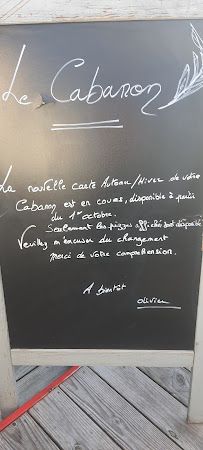 Le Cabanon
La nouvelle carte Automne/Hiver de votre
Cabanon est en cours, disponible à partir
du 1er octobre.
Seulement les pizzas affichées sont disponible
Veuillez en excuser du changement
Merci de votre compréhension.
A bientôt
Olivier